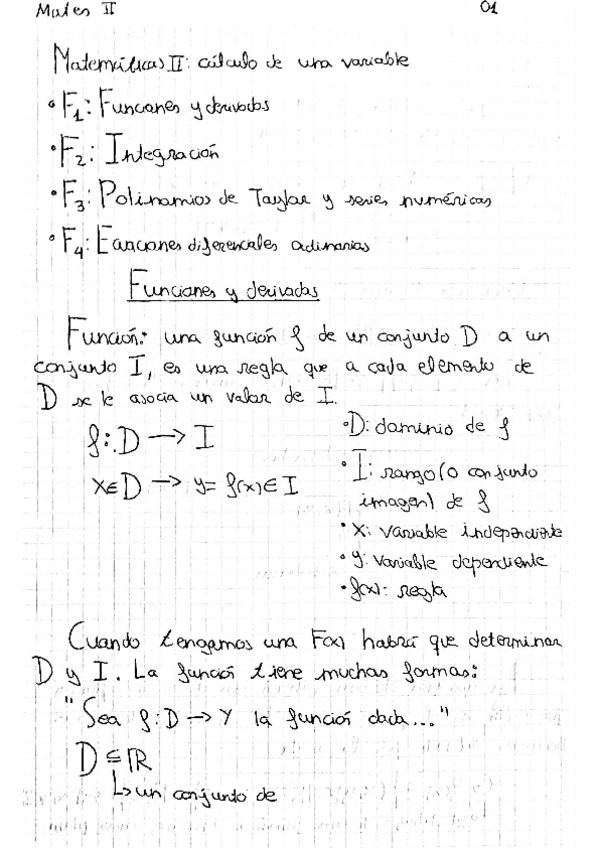 Mates II
01
Matemáticas II: cálculo de una variable
• F₁: Funciones y derivadas
• F₂: Integración
• F₃: Polinomios de Taylor y series numéricas
• F₄: Ecuaciones diferenciales ordinarias
Funciones y derivadas
Función: una función f de un conjunto D a un
conjunto I, es una regla que a cada elemento de
D se le asocia un valor de I.
f: D → I
x∈D → y= f(x)∈I
• D: dominio de f
• I: rango (o conjunto
imagen) de f
• x: variable independiente
• y: variable dependiente
• f(x): regla
Cuando tengamos una F(x) habrá que determinar
D y I. La función tiene muchas formas:
"Sea f: D → Y la función dada..."
D ⊆ ℝ
↳ un conjunto de